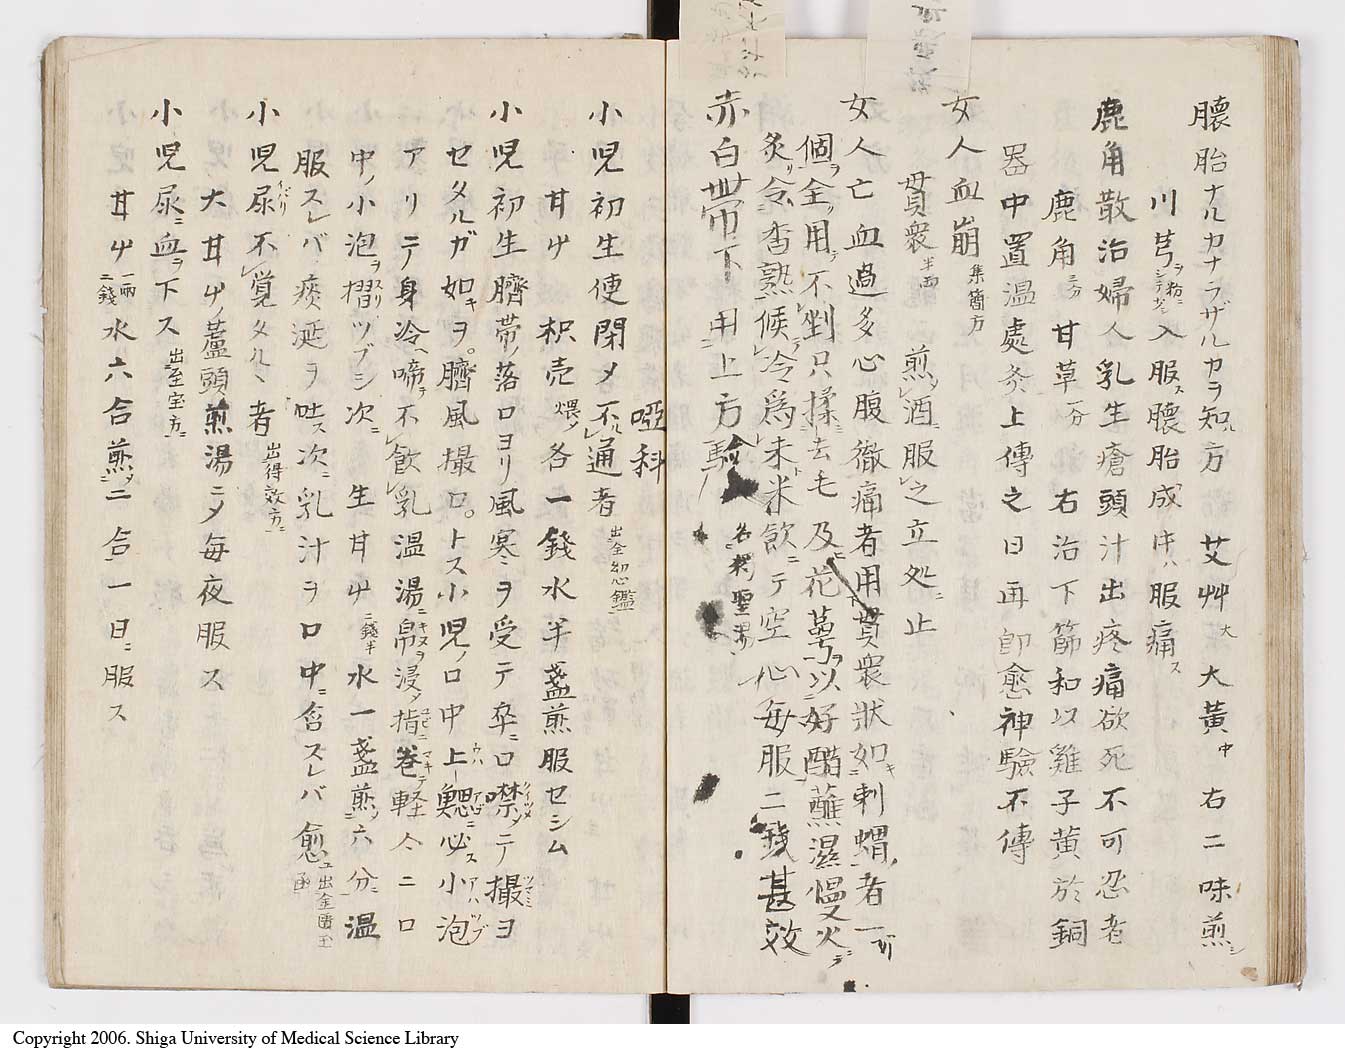 膿胎ナルカナラザルカヲ知ル方 艾艸大 大黄中 右二味煎シ
川芎ヲ粉ニシテ入服ス膿胎成ハ服痛ス
鹿角散治婦人乳生瘡頭汁出疼痛欲死不可忍者
鹿角二分 甘草一分 右治下篩和以雞子黄於銅
器中置温處炙上傳之日再即愈神驗不傳
女人血崩 集簡方
貫衆半両 煎ノ酒ニ服之立処ニ止
女人亡血過多心腹徹痛者用貫衆狀如キ刺蝟者一
個ヲ全ノ用テ不剉只揉去毛及花萼ヲ以好醋蘸濕慢火ニテ
炙リ令香熟候冷為末米飲ニテ空心毎服二錢甚效
赤白帯下用上方験
啞科
小児初生便閉メ不通者 出全幼心鑑
甘艸 枳壳煨ノ 各一錢水半盞煎服セシム
小児初生臍帯ノ落口ヨリ風寒ヲ受テ卒ニ口噤ノテ撮ヨ
セタルガ如キヲ。臍風撮口。トス小児ノ口中上腭ニ必ス小泡
アリテ身冷ヘ啼ヲ不飲乳温湯ニ帛ヲ浸ノ指ニ巻テ軽々ニ口
中ノ小泡ヲ摺ツブシ次ニ生甘艸二錢半水一盞煎ノ六分ニ温
服スレバ痰涎ヲ吐ス次ニ乳汁ヲ口中ニ含スレバ愈ユ 出金匱玉函
小児尿不覚タルヽ者 出得效方ニ
大甘艸ノ蘆頭煎湯ニメ毎夜服ス
小児尿ニ血ヲ下ス 出至宝方ニ
甘艸一両二錢水六合煎ノ二合一日ニ服ス
Copyright 2006. Shiga University of Medical Science Library